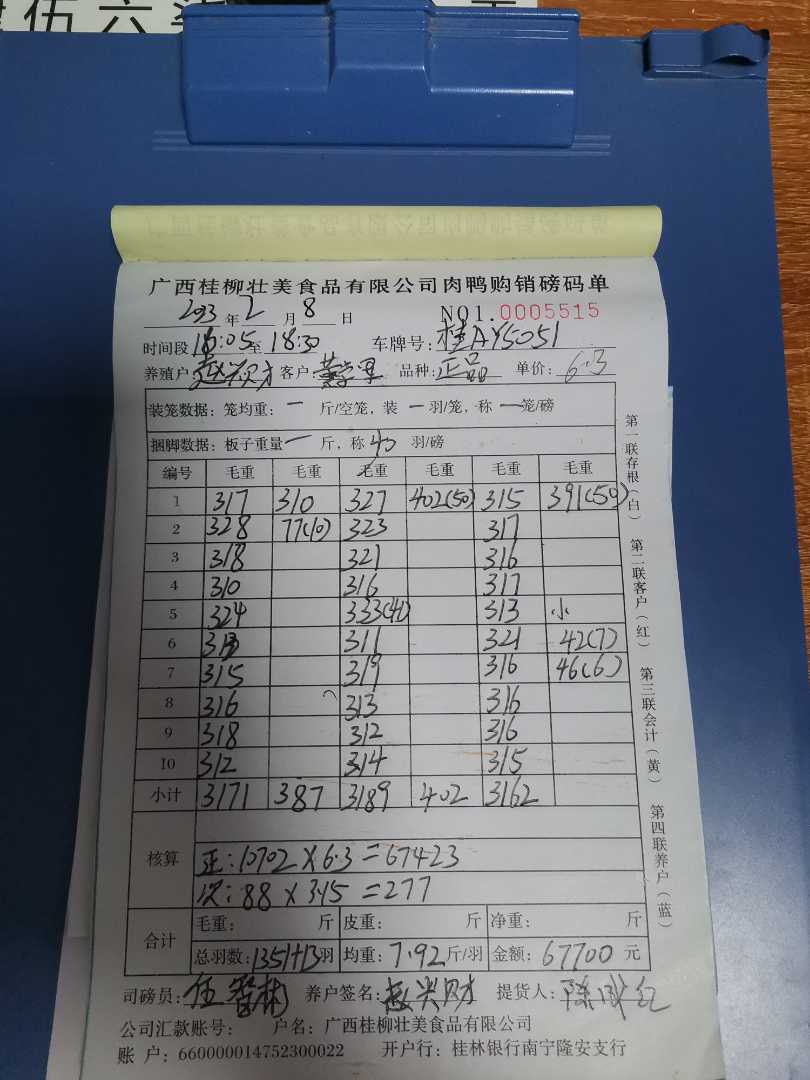 伍六
广西桂柳壮美食品有限公司肉鸭购销磅码单
2023年2月8日 NO1.0005515
时间段 16:05至18:30 车牌号:桂AY5051
养殖户: 客户: 品种:正品 单价:6.3
装笼数据:笼均重:一斤/空笼,装一羽/笼,称一笼/磅
捆脚数据:板子重量一斤,称40羽/磅
编号 毛重 毛重 毛重 毛重 毛重 毛重
1 317 310 327 402(50) 315 391(50)
2 328 77(10) 323 317
3 318 321 316
4 310 316 317
5 324 333(41) 313 小
6 311 321 42(7)
7 315 319 316 46(6)
8 316 313 316
9 318 312 316
10 312 314 315
小计 3171 387 3189 402 3162
核算
正:10702×6.3=67423
次:88×3.15=277
合计
毛重: 斤 皮重: 斤 净重: 斤
总羽数:1351+13羽 均重:7.92斤/羽 金额:67700元
司磅员: 养户签名: 提货人:
公司汇款账号: 户名:广西桂柳壮美食品有限公司
账 户:660000014752300022 开户行:桂林银行南宁隆安支行
第一联存根(白) 第二联客户(红) 第三联会计(黄) 第四联养户(蓝)